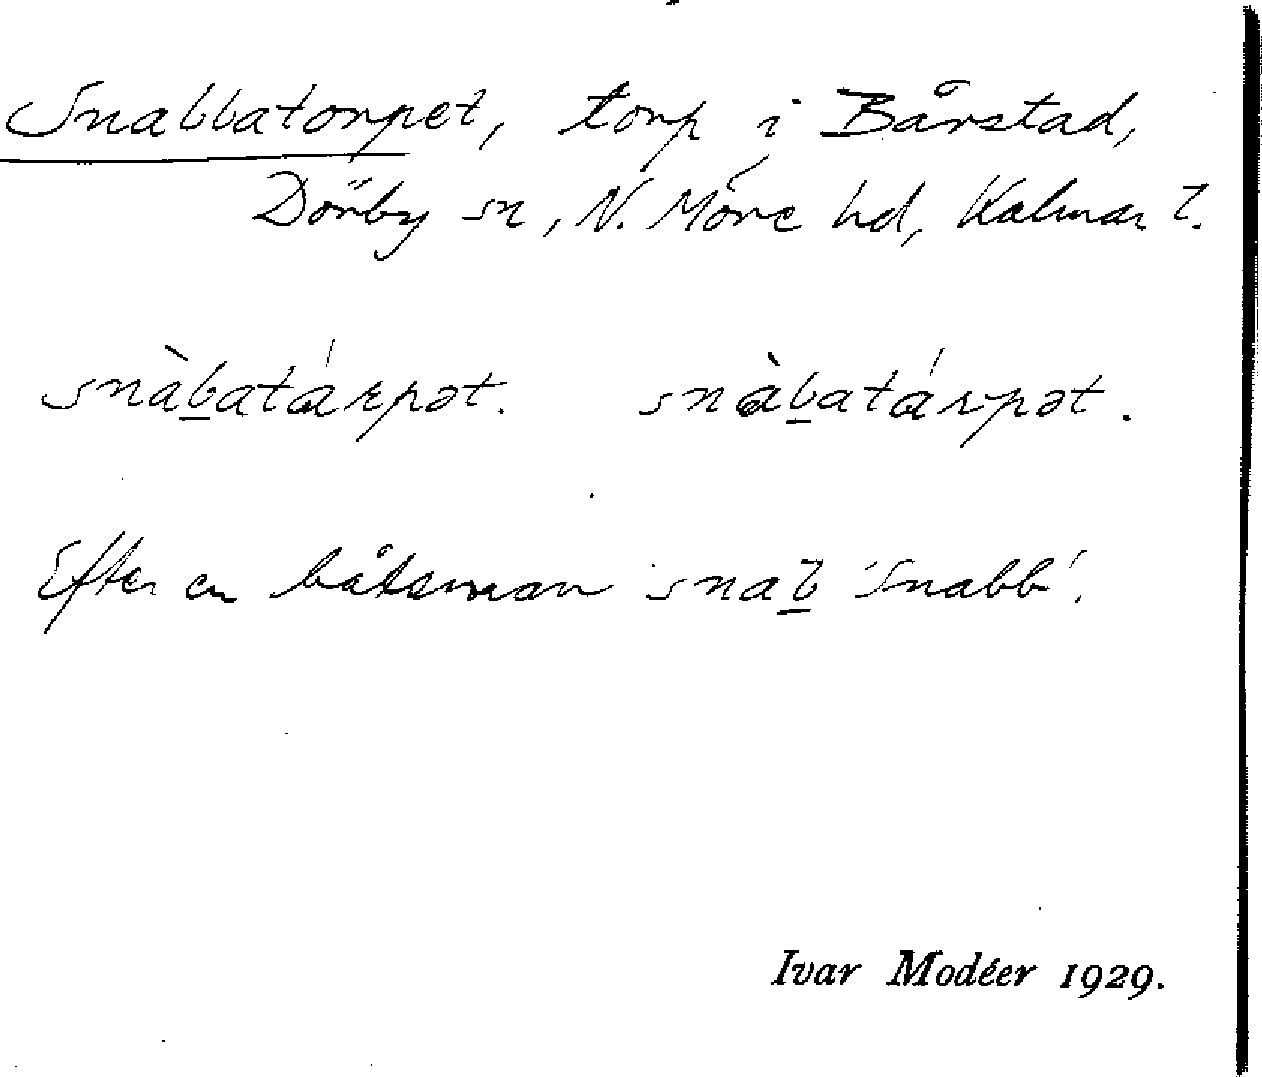 Snabbatorpet, torp i Bårstad,
Dörby sn, N. Möre hd, Kalmar l.
snàb̲atárpət. snàb̲atárpət.
Efter en båtsman snab̲ 'Snabb'.
Ivar Modéer 1929.